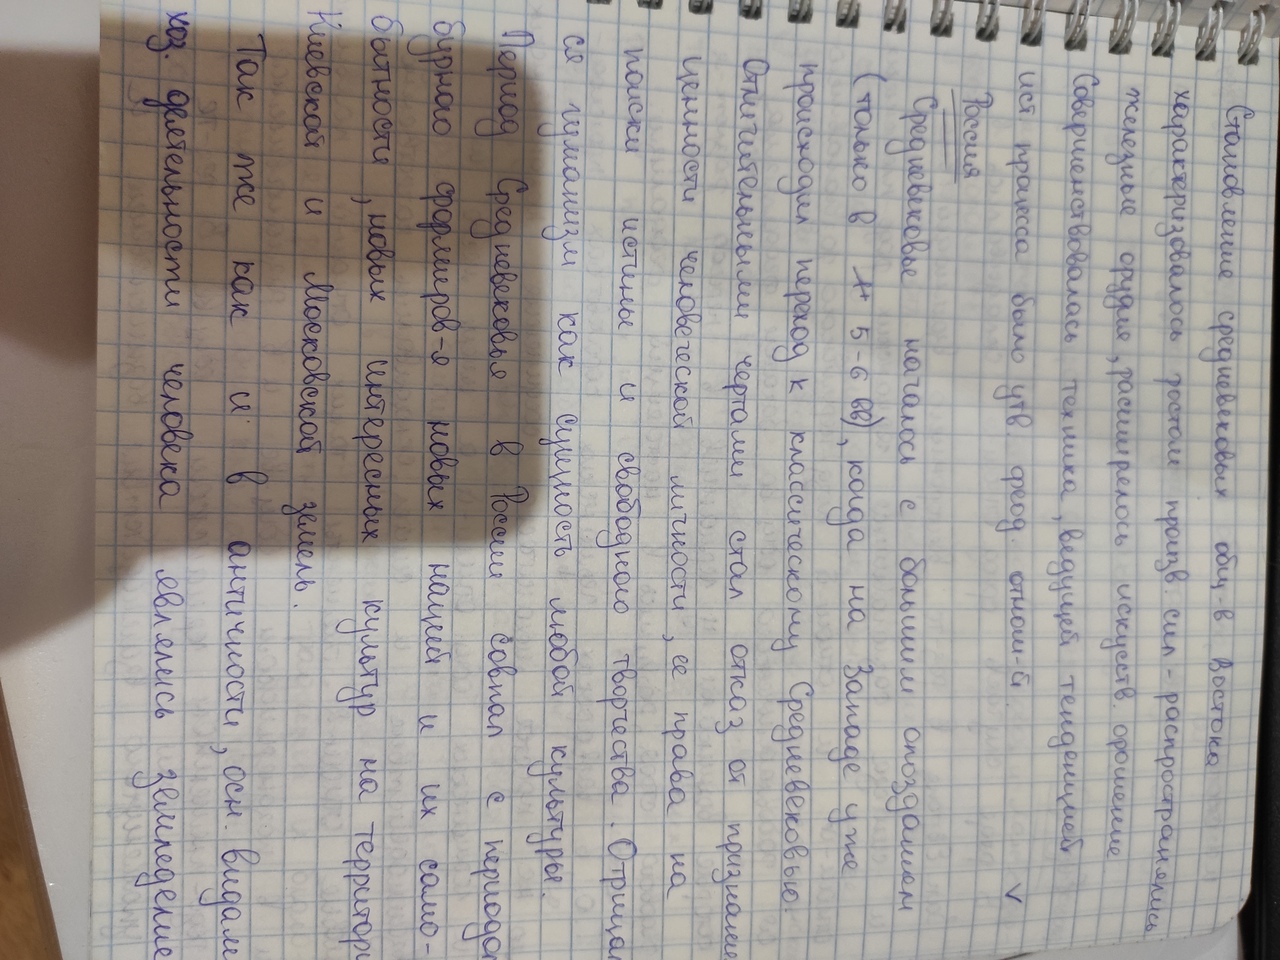 Становление средневековых общ-в Востока
характеризовалось ростом произв. сил - распространялись
железные орудия, расширялось искусств. орошение
Совершенствовалась техника, ведущей тенденцией
ист. процесса было утв. феод. отнош-й. V
Россия
Средневековье началось с большим опозданием
(только в 5-6 вв), когда на Западе уже
происходил переход к классическому Средневековью.
Отличительными чертами стал отказ от признани
ценности человеческой личности, ее права на
поиски истины и свободного творчества. Отрица
ся гуманизм как сущность любой культуры.
Период Средневековья в России совпал с периодо
бурного формиров-я новых наций и их само-
бытности, новых интересных культур на территор
Киевской и Московской земель.
Так же как и в античности, осн. видам
хоз. деятельности человека являлись земледелие